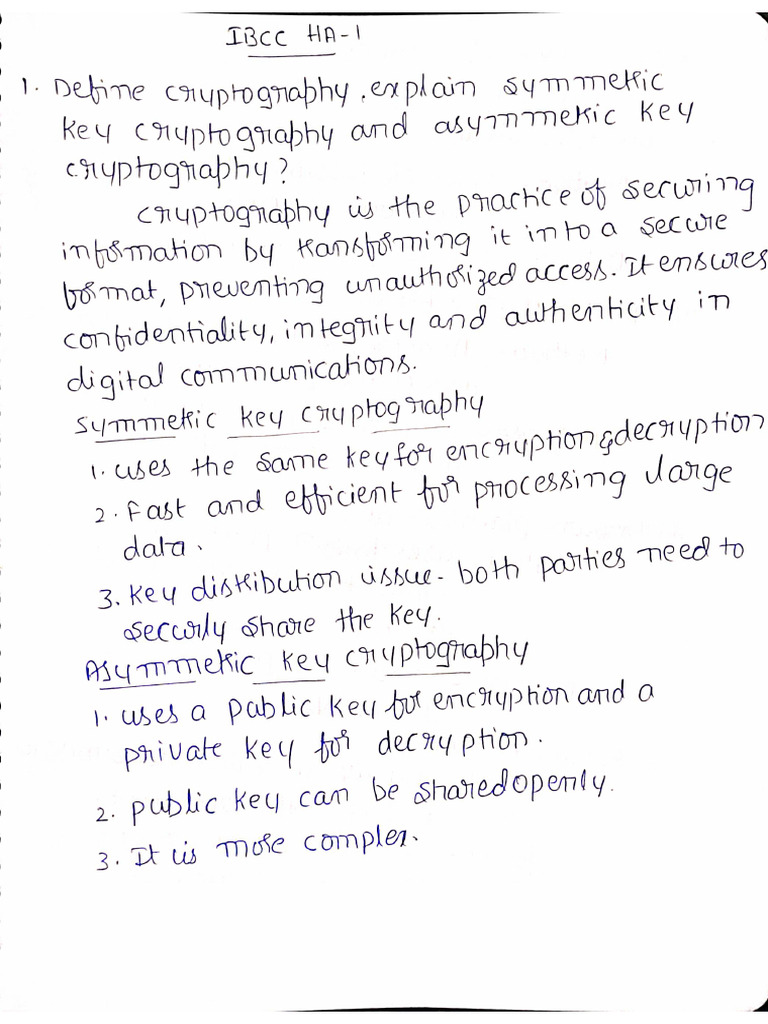 IBCC HA-1
1. Define cryptography. explain symmetric
key cryptography and asymmetric key
cryptography?
cryptography is the practice of securing
information by transforming it into a secure
format, preventing unauthorized access. It ensures
confidentiality, integrity and authenticity in
digital communications.
Symmetric key cryptography
1. uses the same key for encryption & decryption
2. Fast and efficient for processing large
data.
3. Key distribution issue - both parties need to
securly share the key.
Asymmetric key cryptography
1. uses a public key for encryption and a
private key for decryption.
2. public key can be shared openly.
3. It is more complex.